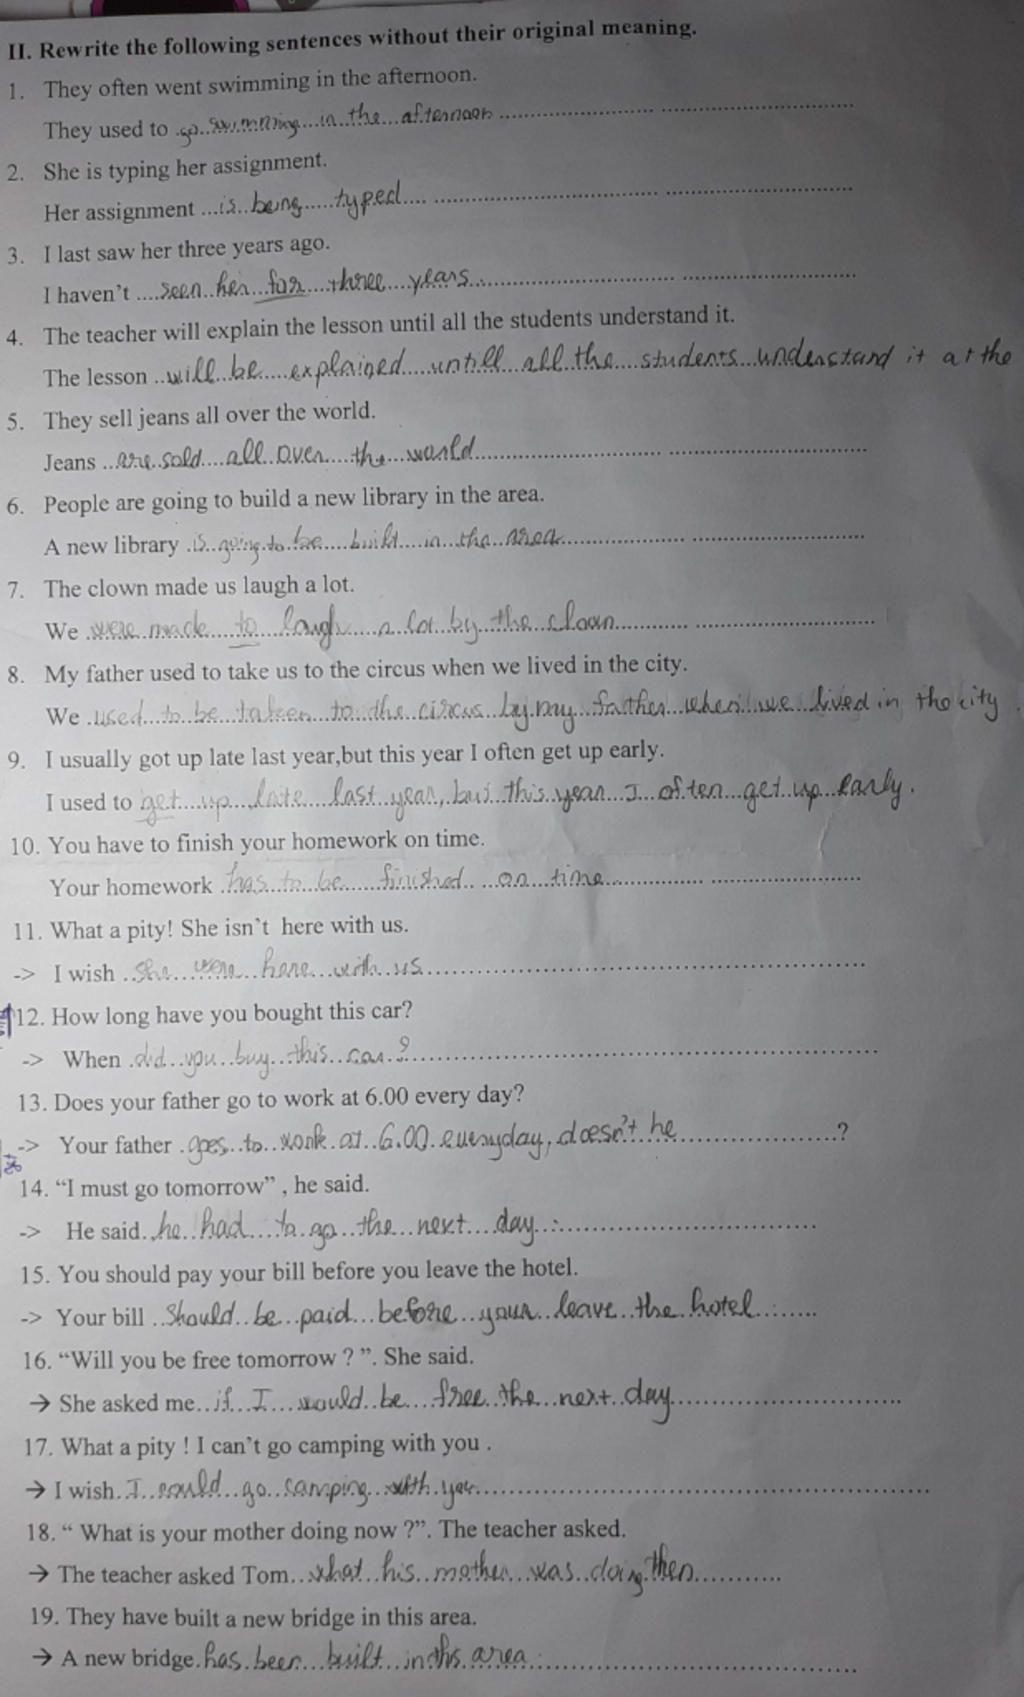 II. Rewrite the following sentences without their original meaning.
1. They often went swimming in the afternoon.
They used to go swimming in the afternoon
2. She is typing her assignment.
Her assignment is being typed
3. I last saw her three years ago.
I haven't seen her for three years
4. The teacher will explain the lesson until all the students understand it.
The lesson will be explained untill all the students understand it at the
5. They sell jeans all over the world.
Jeans are sold all over the world
6. People are going to build a new library in the area.
A new library is going to be built in the area
7. The clown made us laugh a lot.
We were made to laugh a lot by the clown
8. My father used to take us to the circus when we lived in the city.
We used to be taken to the circus by my father when we lived in the city
9. I usually got up late last year,but this year I often get up early.
I used to get up late last year, but this year I often get up early.
10. You have to finish your homework on time.
Your homework has to be finished on time
11. What a pity! She isn't here with us.
-> I wish she were here with us
12. How long have you bought this car?
-> When did you buy this car?
13. Does your father go to work at 6.00 every day?
-> Your father goes to work at 6.00 everyday, doesn't he ?
14. “I must go tomorrow” , he said.
-> He said he had to go the next day
15. You should pay your bill before you leave the hotel.
-> Your bill should be paid before your leave the hotel
16. “Will you be free tomorrow ? ”. She said.
→ She asked me if I would be free the next day
17. What a pity ! I can't go camping with you .
→ I wish I could go camping with you
18. “ What is your mother doing now ?”. The teacher asked.
→ The teacher asked Tom what his mother was doing then
19. They have built a new bridge in this area.
→ A new bridge has been built in this area